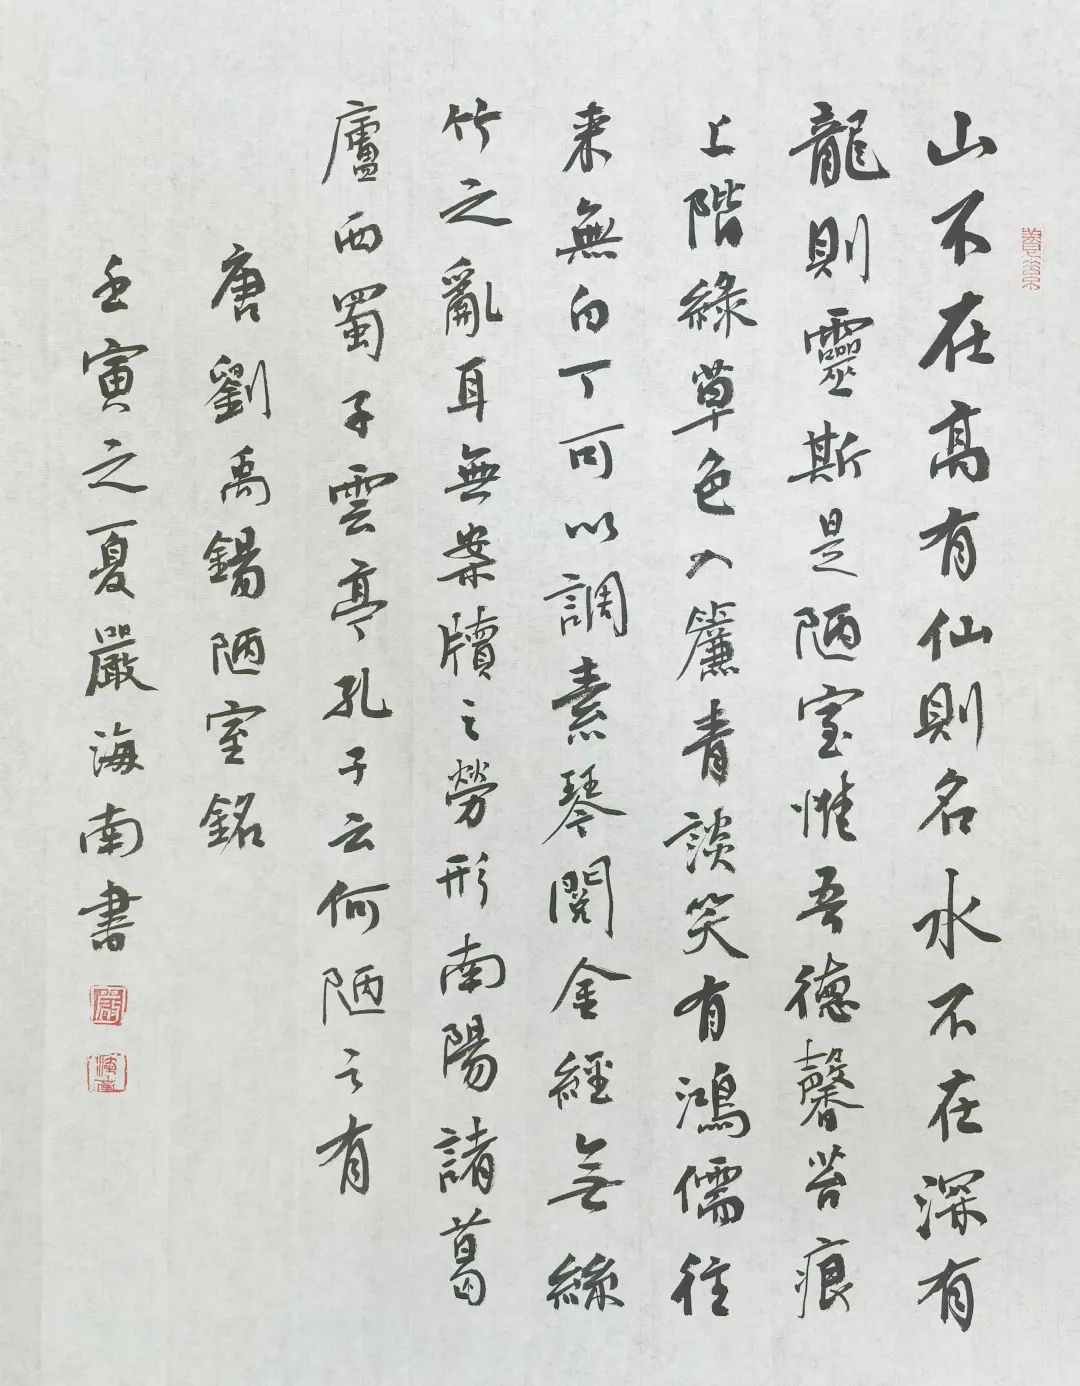 山不在高有仙則名水不在深有
龍則靈斯是陋室惟吾德馨苔痕
上階綠草色入簾青談笑有鴻儒往
来無白丁可以調素琴閱金經無絲
竹之亂耳無案牘之勞形南陽諸葛
廬西蜀子雲亭孔子云何陋之有
唐劉禹錫陋室銘
壬寅之夏嚴海南書
嚴
海南